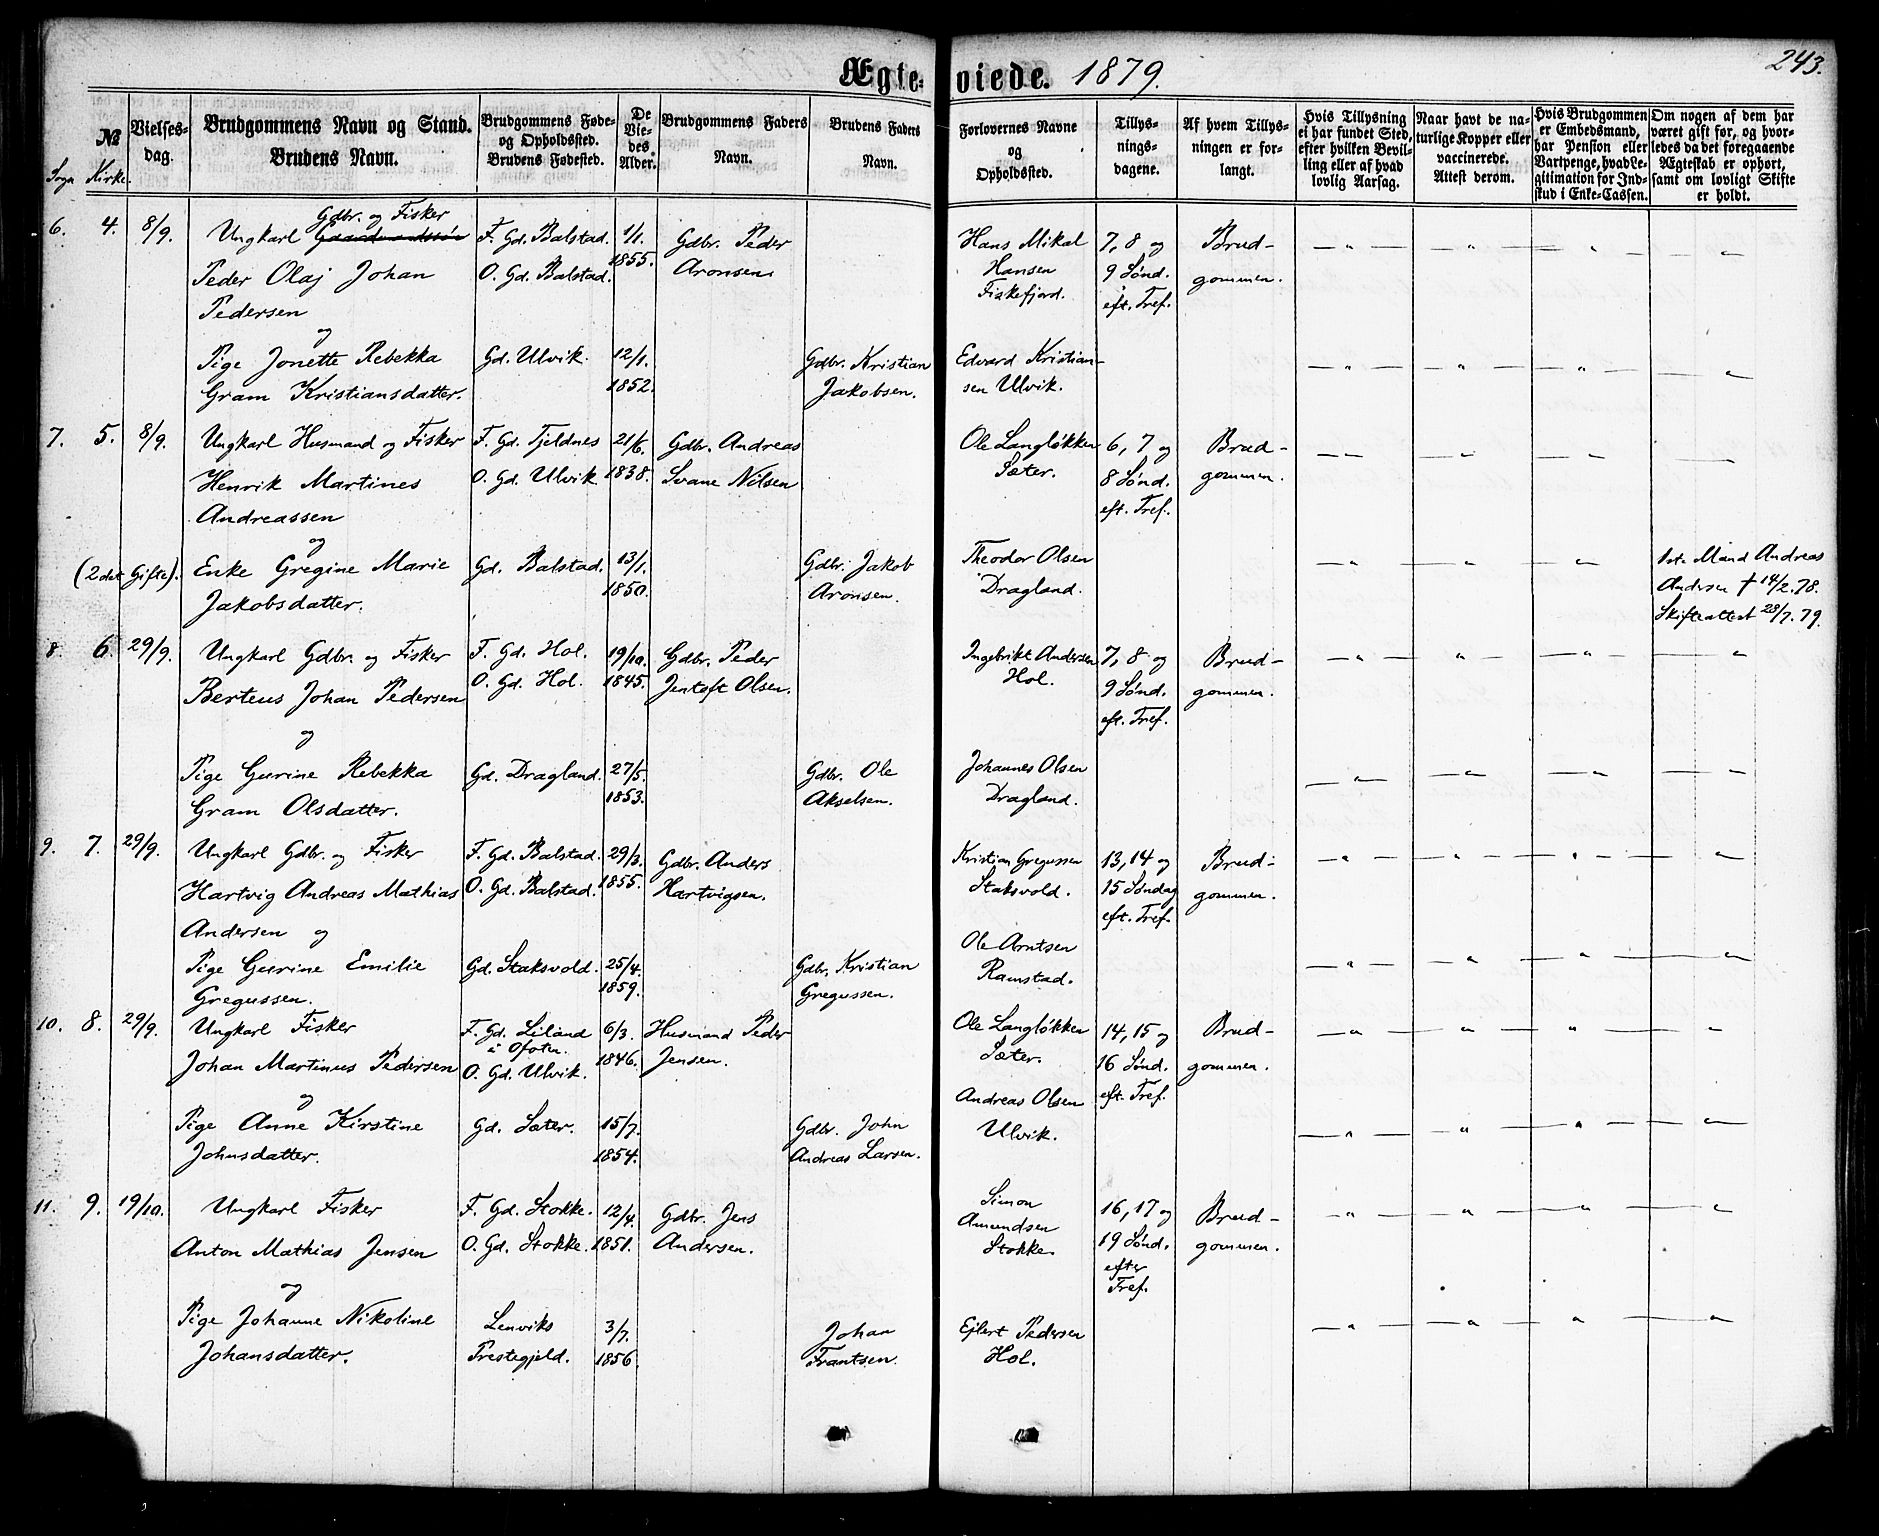 Ægteviede. 1879.
243.
№
Sogn Kirke.
Vielses-
dag.
Brudgommens Navn og Stand.
Brudens Navn.
Brudgommens Føde-
og Opholdssted.
Brudens Fødested.
De
Vie-
des
Alder.
Brudgommens Faders
Navn.
Brudens Faders
Navn.
Forlovernes Navne
og
Opholdssted.
Tillys-
nings-
dagene.
Af hvem Tillys-
ningen er for-
langt.
Hvis Tillysning
ei har fundet Sted,
efter hvilken Bevil-
ling eller af hvad
lovlig Aarsag.
Naar havt de na-
turlige Kopper eller
vaccinerede.
Attest derom.
Hvis Brudgommen
er Embedsmand,
har Pension eller
Vartpenge, hvad Le-
gitimation for Ind-
skud i Enke-Cassen.
Om nogen af dem har
været gift før, og hvor-
ledes da det foregaaende
Ægteskab er ophørt,
samt om lovligt Skifte
er holdt.
6. 4. 8/9.
Gdbr. og Fisker
Ungkarl Gaardmandssøn
Peder Olaj Johan
Pedersen
og
Pige Jonette Rebekka
Gram Kristiansdatter.
F. Gd. Balstad.
O. Gd. Balstad.
Gd. Ulvik.
1/1.
1855.
12/1.
1852.
Gdbr. Peder
Aronsen.
Gdbr. Kristian
Jakobsen.
Hans Mikal
Hansen
Fiskefjord.
Edvard Kristian-
sen Ulvik.
7, 8 og
9 Sønd.
eft. Tref.
Brud-
gommen.
7. 5. 8/9.
Ungkarl Husmand og Fisker
Henrik Martines
Andreassen
og
(2det Gifte). Enke Gregine Marie
Jakobsdatter.
F. Gd. Tjeldnes
O. Gd. Ulvik
Gd. Balstad.
21/6.
1838.
13/1.
1850.
Gdbr. Andreas
Svane Nilsen
Gdbr. Jakob
Aronsen.
Ole Langløkken
Sæter.
Theodor Olsen
Dragland.
6, 7 og
8 Sønd.
eft. Tref.
Brud-
gommen.
1ste Mand Andreas
Andersen † 14/2.78.
Skifteattest 28/7.79.
8. 6. 29/9.
Ungkarl Gdbr. og Fisker
Berteus Johan Pedersen
og
Pige Gurine Rebekka
Gram Olsdatter.
F. Gd. Hol.
O. Gd. Hol.
Gd. Dragland.
19/10.
1845.
27/5.
1853.
Gdbr. Peder
Jentoft Olsen.
Gdbr. Ole
Akselsen.
Ingebrikt Andersen
Hol.
Johannes Olsen
Dragland.
7, 8 og
9 Sønd.
eft. Tref.
Brud-
gommen.
9. 7. 29/9.
Ungkarl Gdbr. og Fisker
Hartvig Andreas Mathias
Andersen og
Pige Gurine Emilie
Gregussen.
F. Gd. Balstad.
O. Gd. Balstad.
Gd. Staksvold.
29/3.
1855.
25/4.
1859.
Gdbr. Anders
Hartvigsen.
Gdbr. Kristian
Gregussen.
Kristian Gregussen
Staksvold.
Ole Arntsen
Ramstad.
13, 14 og
15 Søndag
eft. Tref.
Brud-
gommen.
10. 8. 29/9.
Ungkarl Fisker
Johan Martinus Pedersen
og
Pige Anne Kirstine
Johnsdatter.
F. Gd. Liland
i Ofoten.
O. Gd. Ulvik.
Gd. Sæter.
6/3.
1846.
15/7.
1854.
Husmand Peder
Jensen.
Gdbr. John
Andreas Larsen.
Ole Langløkken
Sæter.
Andreas Olsen
Ulvik.
14, 15 og
16 Sønd.
eft. Tref.
Brud-
gommen.
11. 9. 19/10.
Ungkarl Fisker
Anton Mathias Jensen
og
Pige Johanne Nikoline
Johansdatter.
F. Gd. Stokke.
O. Gd. Stokke.
Lenviks
Prestegjeld.
12/4.
1851.
3/7.
1856.
Gdbr. Jens
Andersen.
Johan
Frantsen.
Simon
Amundsen
Stokke.
Ejlert Pedersen
Hol.
16, 17 og
19 Sønd.
efter
Tref.
Brud-
gommen.